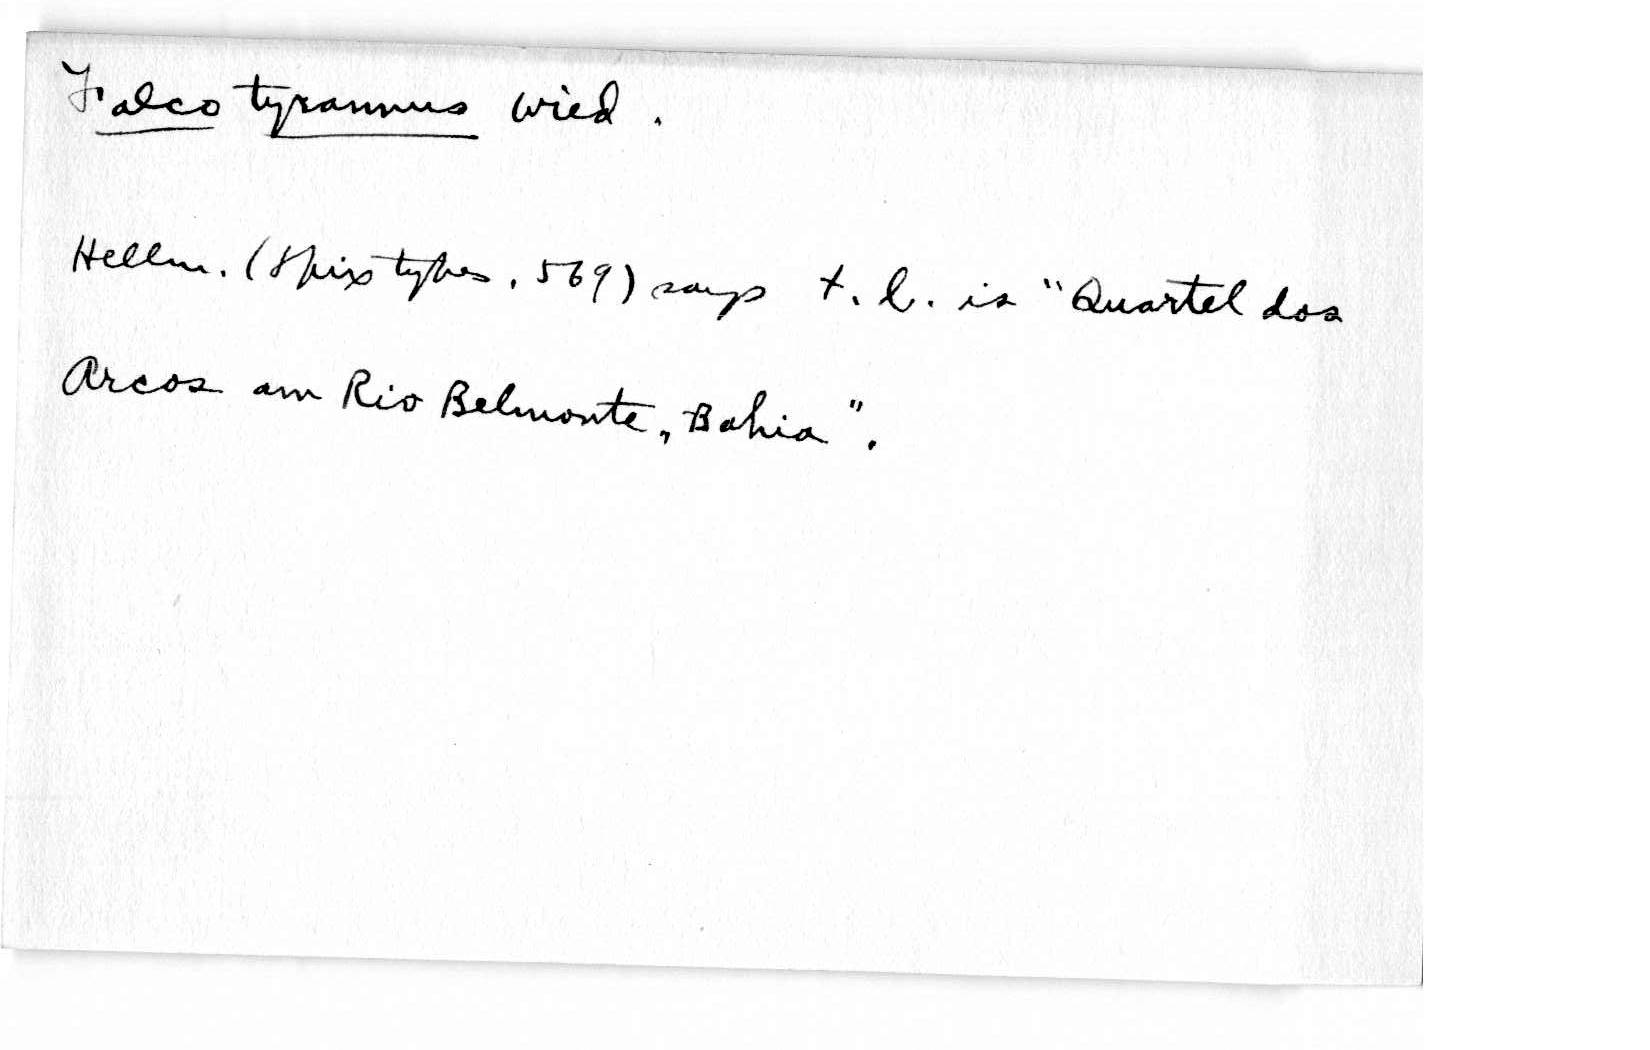 Falco tyrannus Wied.
Hellm. (Spix types, 569) says t. l. is "Quartel dos
Arcos am Rio Belmonte, Bahia".